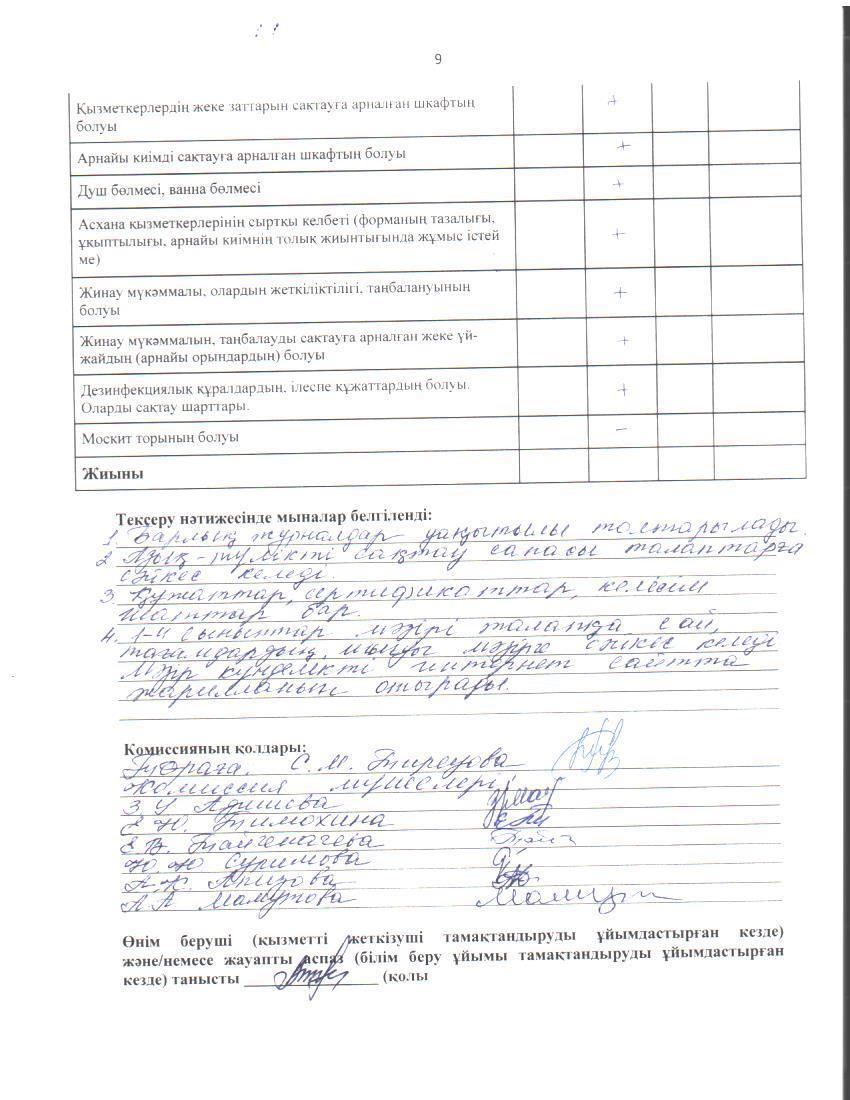 9
Қызметкерлердің жеке заттарын сақтауға арналған шкафтың
болуы
+
Арнайы киімді сақтауға арналған шкафтың болуы
+
Душ бөлмесі, ванна бөлмесі
+
Асхана қызметкерлерінің сыртқы келбеті (форманың тазалығы,
ұқыптылығы, арнайы киімнің толық жиынтығында жұмыс істей
ме)
+
Жинау мүкәммалы, олардың жеткіліктілігі, таңбалануының
болуы
+
Жинау мүкәммалын, таңбалауды сақтауға арналған жеке үй-
жайдың (арнайы орындардың) болуы
+
Дезинфекциялық құралдардың, ілеспе құжаттардың болуы.
Оларды сақтау шарттары.
+
Москит торының болуы
-
Жиыны
Тексеру нәтижесінде мыналар белгіленді:
1. Барлық журналдар уақытылы толтарылады.
2. Азық-түлікті сақтау сапасы талаптарға
сәйкес келеді.
3. Құжаттар, сертификаттар, келісім
шаттар бар.
4. 1-4 сыныптар мәзірі талапқа сай,
тағамдардың шығуы мәзірге сәйкес келеді
Мәзір күнделекті интернет сайтта
жарилланып отырады.
Комиссияның қолдары:
Төраға. С.М.
Комиссия мүшелері
З.У
Е.Ю. Тимохина
Е.В.
Ю.Ю
А.К.
А.А Мамутова
Өнім беруші (қызметті жеткізуші тамақтандыруды ұйымдастырған кезде)
және/немесе жауапты аспаз (білім беру ұйымы тамақтандыруды ұйымдастырған
кезде) танысты ________________ (қолы